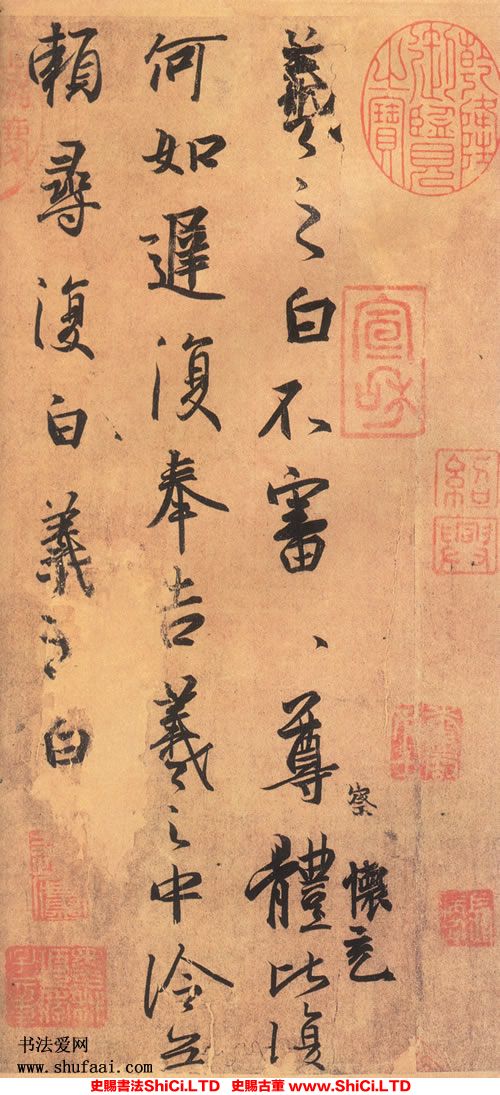 羲之白不審、尊體比復
察
懷充
何如遲復奉告羲之中冷無
賴尋復白、羲之白
乾隆御覽之寶
宣和
紹興
书法爱网
www.shufaai.com
史賜書法ShiCi.LTD 史賜古董 www.ShiCi.LTD